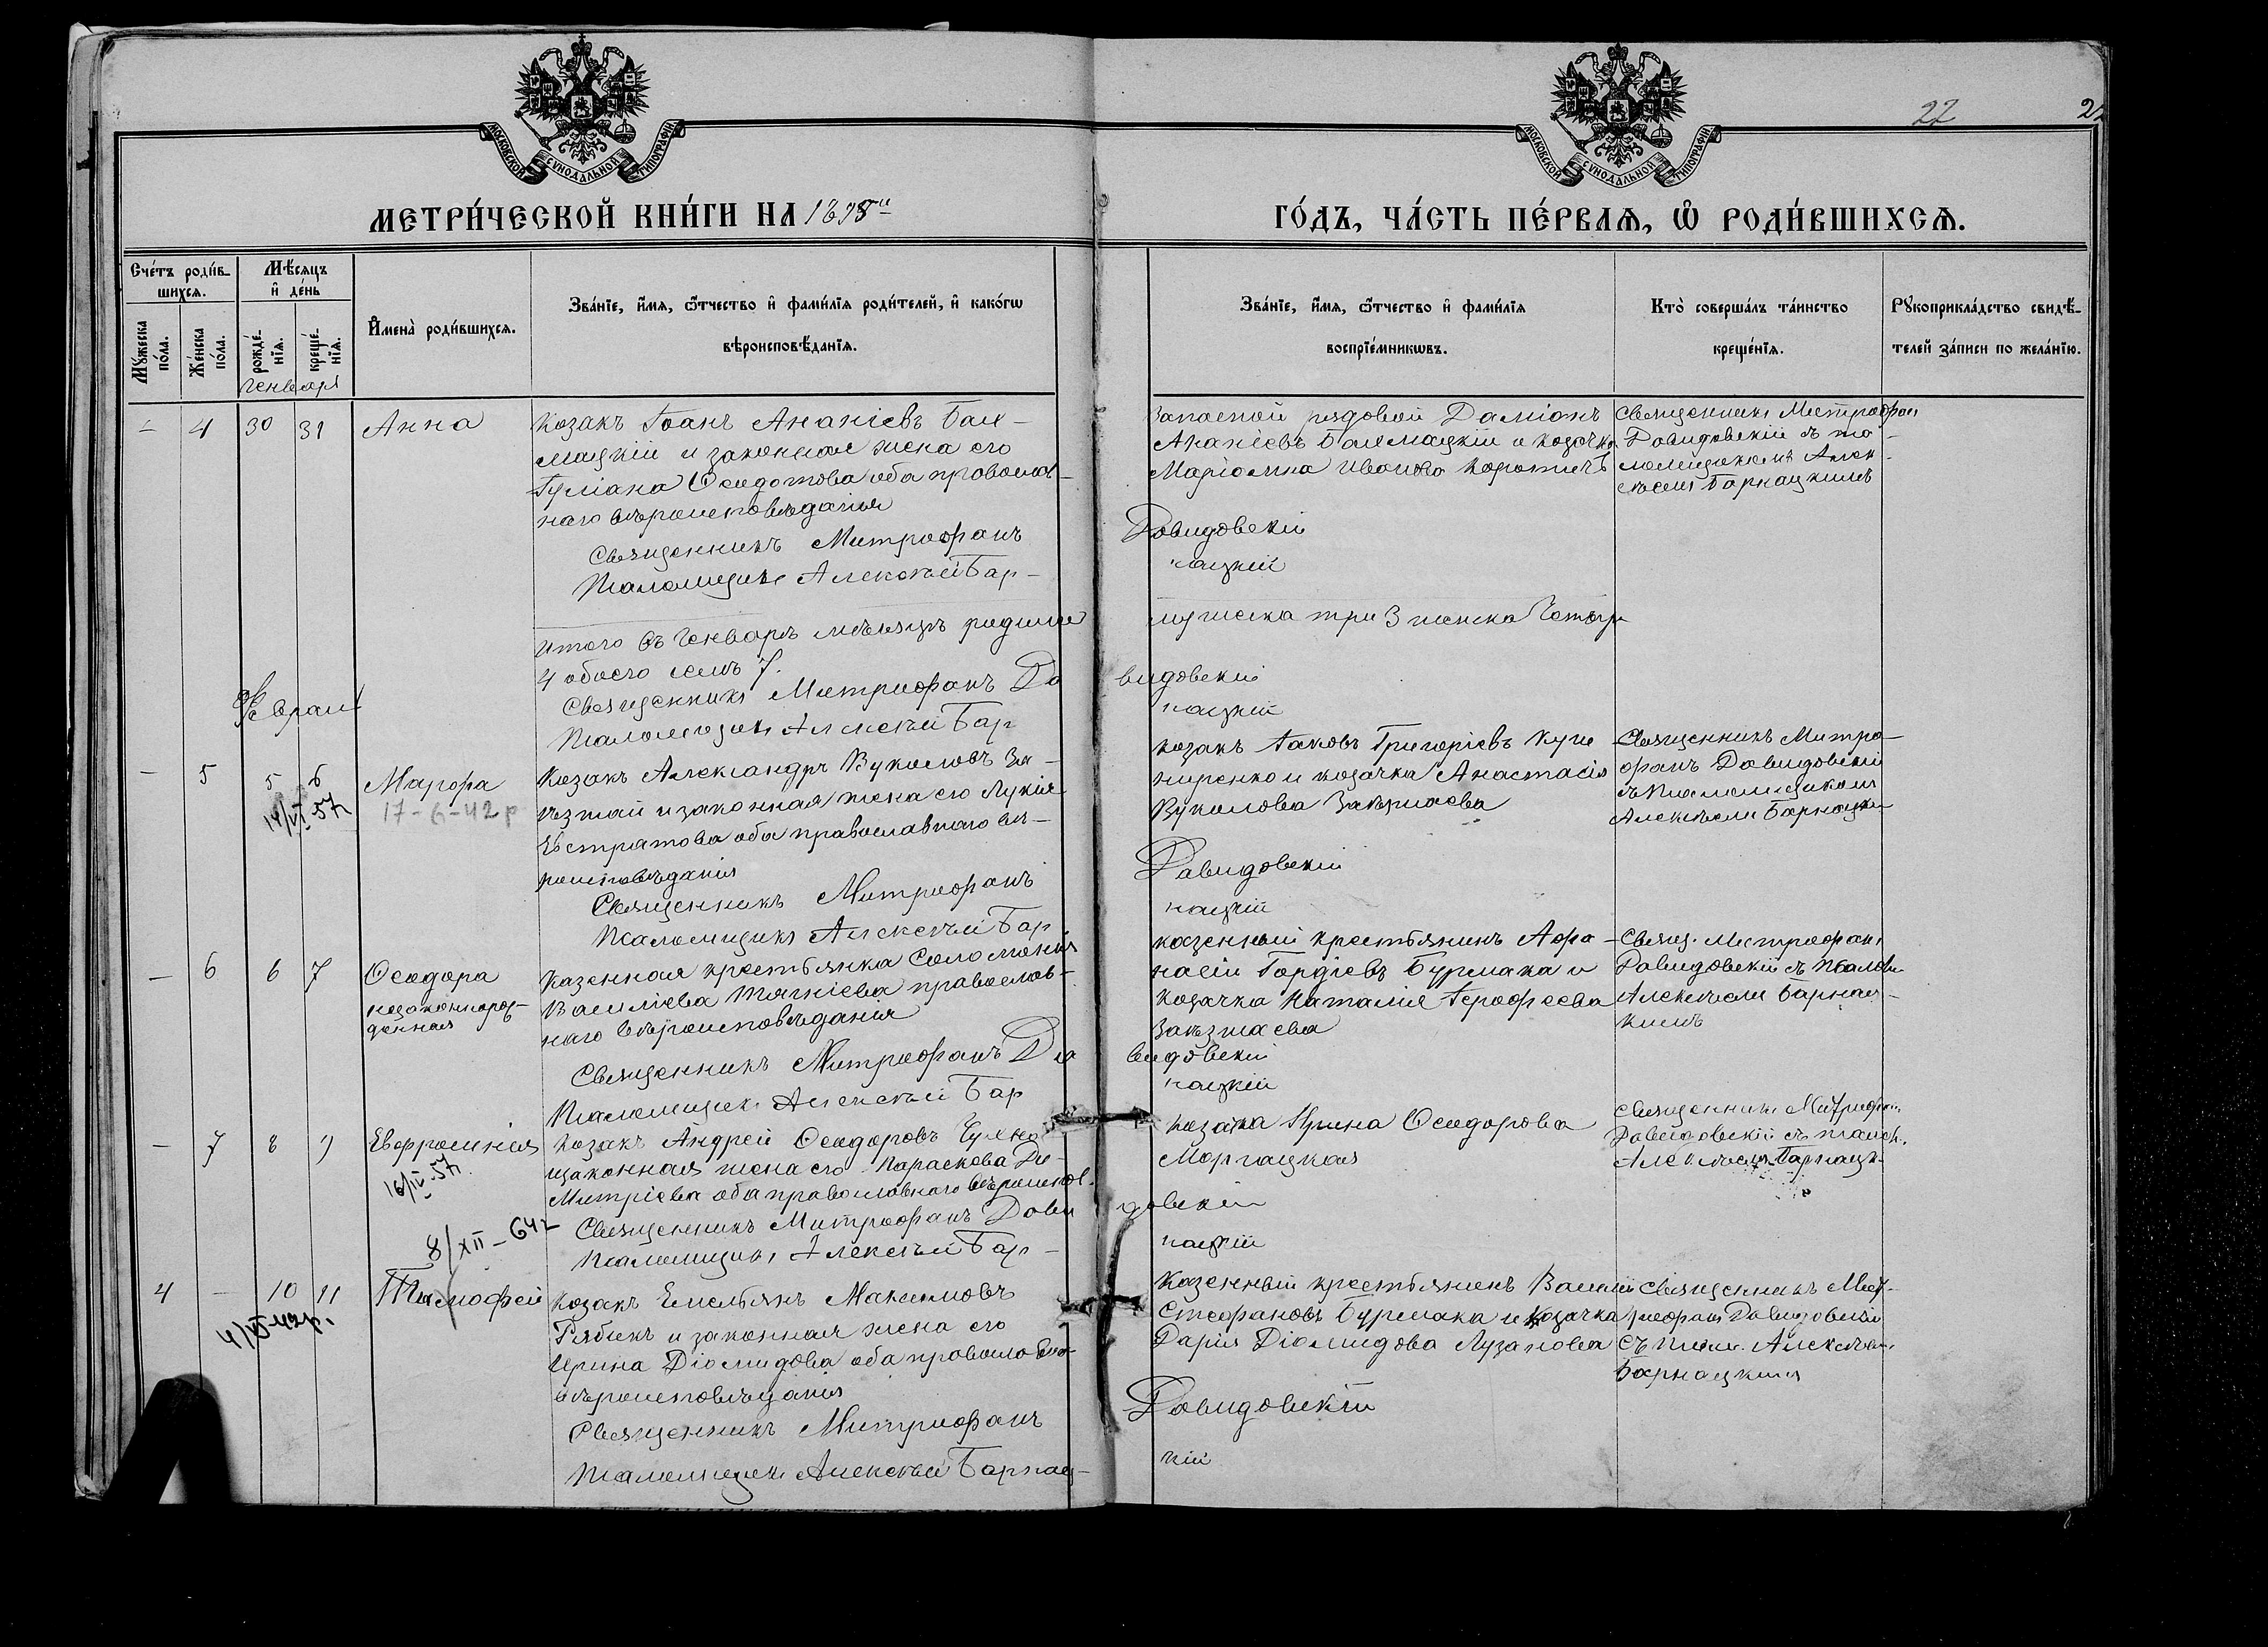 МОСКОВСКОЙ СѴНОДАЛЬНОЙ ТИПОГРАФІИ
МОСКОВСКОЙ СѴНОДАЛЬНОЙ ТИПОГРАФІИ
22
МЕТРИ́ЧЕСКОЙ КНИ́ГИ НА
ГО́ДЪ, ЧА́СТЬ ПЕ́РВАѦ, Ѽ РОДИ́ВШИХСѦ.
Сче́тъ роди́в-
шихсѧ.
Мѣ́сѧцъ
и҆ де́нь
Мꙋ́жеска
по́ла.
Же́нска
по́ла.
рожде́-
нїѧ.
креще́-
нїѧ.
Генваря
И҆мена̀ роди́вшихсѧ.
Зва́нїе, и҆́мѧ, ѻ҆́тчество и҆ фами́лїѧ роди́телей, и҆ како́гѡ
вѣроисповѣ́данїѧ.
Зва́нїе, и҆́мѧ, ѻ҆́тчество и҆ фами́лїѧ
воспрїе́мникѡвъ.
Кто̀ соверша́лъ та́инство
креще́нїѧ.
Рꙋкоприкла́дство свидѣ́-
телей за́писи по жела́нїю.
- 4 30 31 Анна
Козакъ Іоанъ Ананіевъ Бал-
мацкій и законная жена его
Іуліана Ѳеодотова оба православ-
наго вѣроисповѣданія
Священникъ Митрофанъ
Псаломщикъ Алексѣй Бар-
Запасной рядовой Даміанъ
Ананіевъ Балмацкій и козачка
Маріамна Иванова
Священникъ Митрофан
Давидовскій съ пса-
ломщикомъ Алек-
сѣемъ Барнацкимъ
Давидовскій
нацкій
Итого въ Генварѣ мѣсяцѣ родилось
мужеска три 3 женска Четыре
4 обоего семь 7.
Священникъ Митрофанъ Да
видовскій
Псаломщикъ Алексѣй Бар
нацкій
Феврал
- 5 5 6 Марфа
14/VI-57
17-6-42 р
Козакъ Александръ Вукаловъ За-
и законная жена его Лукія
Евстратова оба православнаго вѣ-
роисповѣданія
Священникъ Митрофанъ
Псаломщикъ Алексѣй Бар
Козакъ Іаковъ Григоріевъ
и козачка Анастасія
Вуколова
Священникъ Митро-
фанъ Давидовскій
съ Псаломщикомъ
Алексѣемъ Барнацки
Давидовскій
нацкій
- 6 6 7 Ѳеодора
незаконнорож-
денная
Казенная крестьянка Соломонія
Василіева православ-
наго вѣроисповѣданія
Священникъ Митрофанъ Да
Псаломщикъ Алексѣй Бар
казенный крестьянинъ Афа-
насій Гордіевъ Бурлака и
козачка Наталія Іерофеева
Священ. Митрофан
Давидовскій съ Псалом
Алексѣемъ Барнац-
кимъ
видовскій
нацкій
- 7 8 9 Евфросинія
16/IV-57
Козакъ Андрей Ѳеодоровъ
законная жена его Параскева Ди-
митріева оба православнаго вѣроиспов.
Священникъ Митрофанъ Дави
Псаломщикъ Алексѣй Бар-
козачка Ирина Ѳеодорова
Моргацкая
Священникъ Митрофан
Давидовскій съ псал.
Алексѣемъ Барнацк.
довскій
нацкій
8/XII-64
4 - 10 11 Тимофей
Козакъ Емельянъ Максимовъ
Рябикъ и законная жена его
Ирина Діомидова оба православнаго
вѣроисповѣданія
Священникъ Митрофанъ
Псаломщикъ Алексѣй Барнац-
Казенный крестьянинъ Василій
Стефановъ Бурлака и козачка
Дарія Діомидова Лузанова
Священникъ Мит-
рофанъ Давидовскій
съ Псалм. Алексѣем
Барнацким
Давидовскій
кій